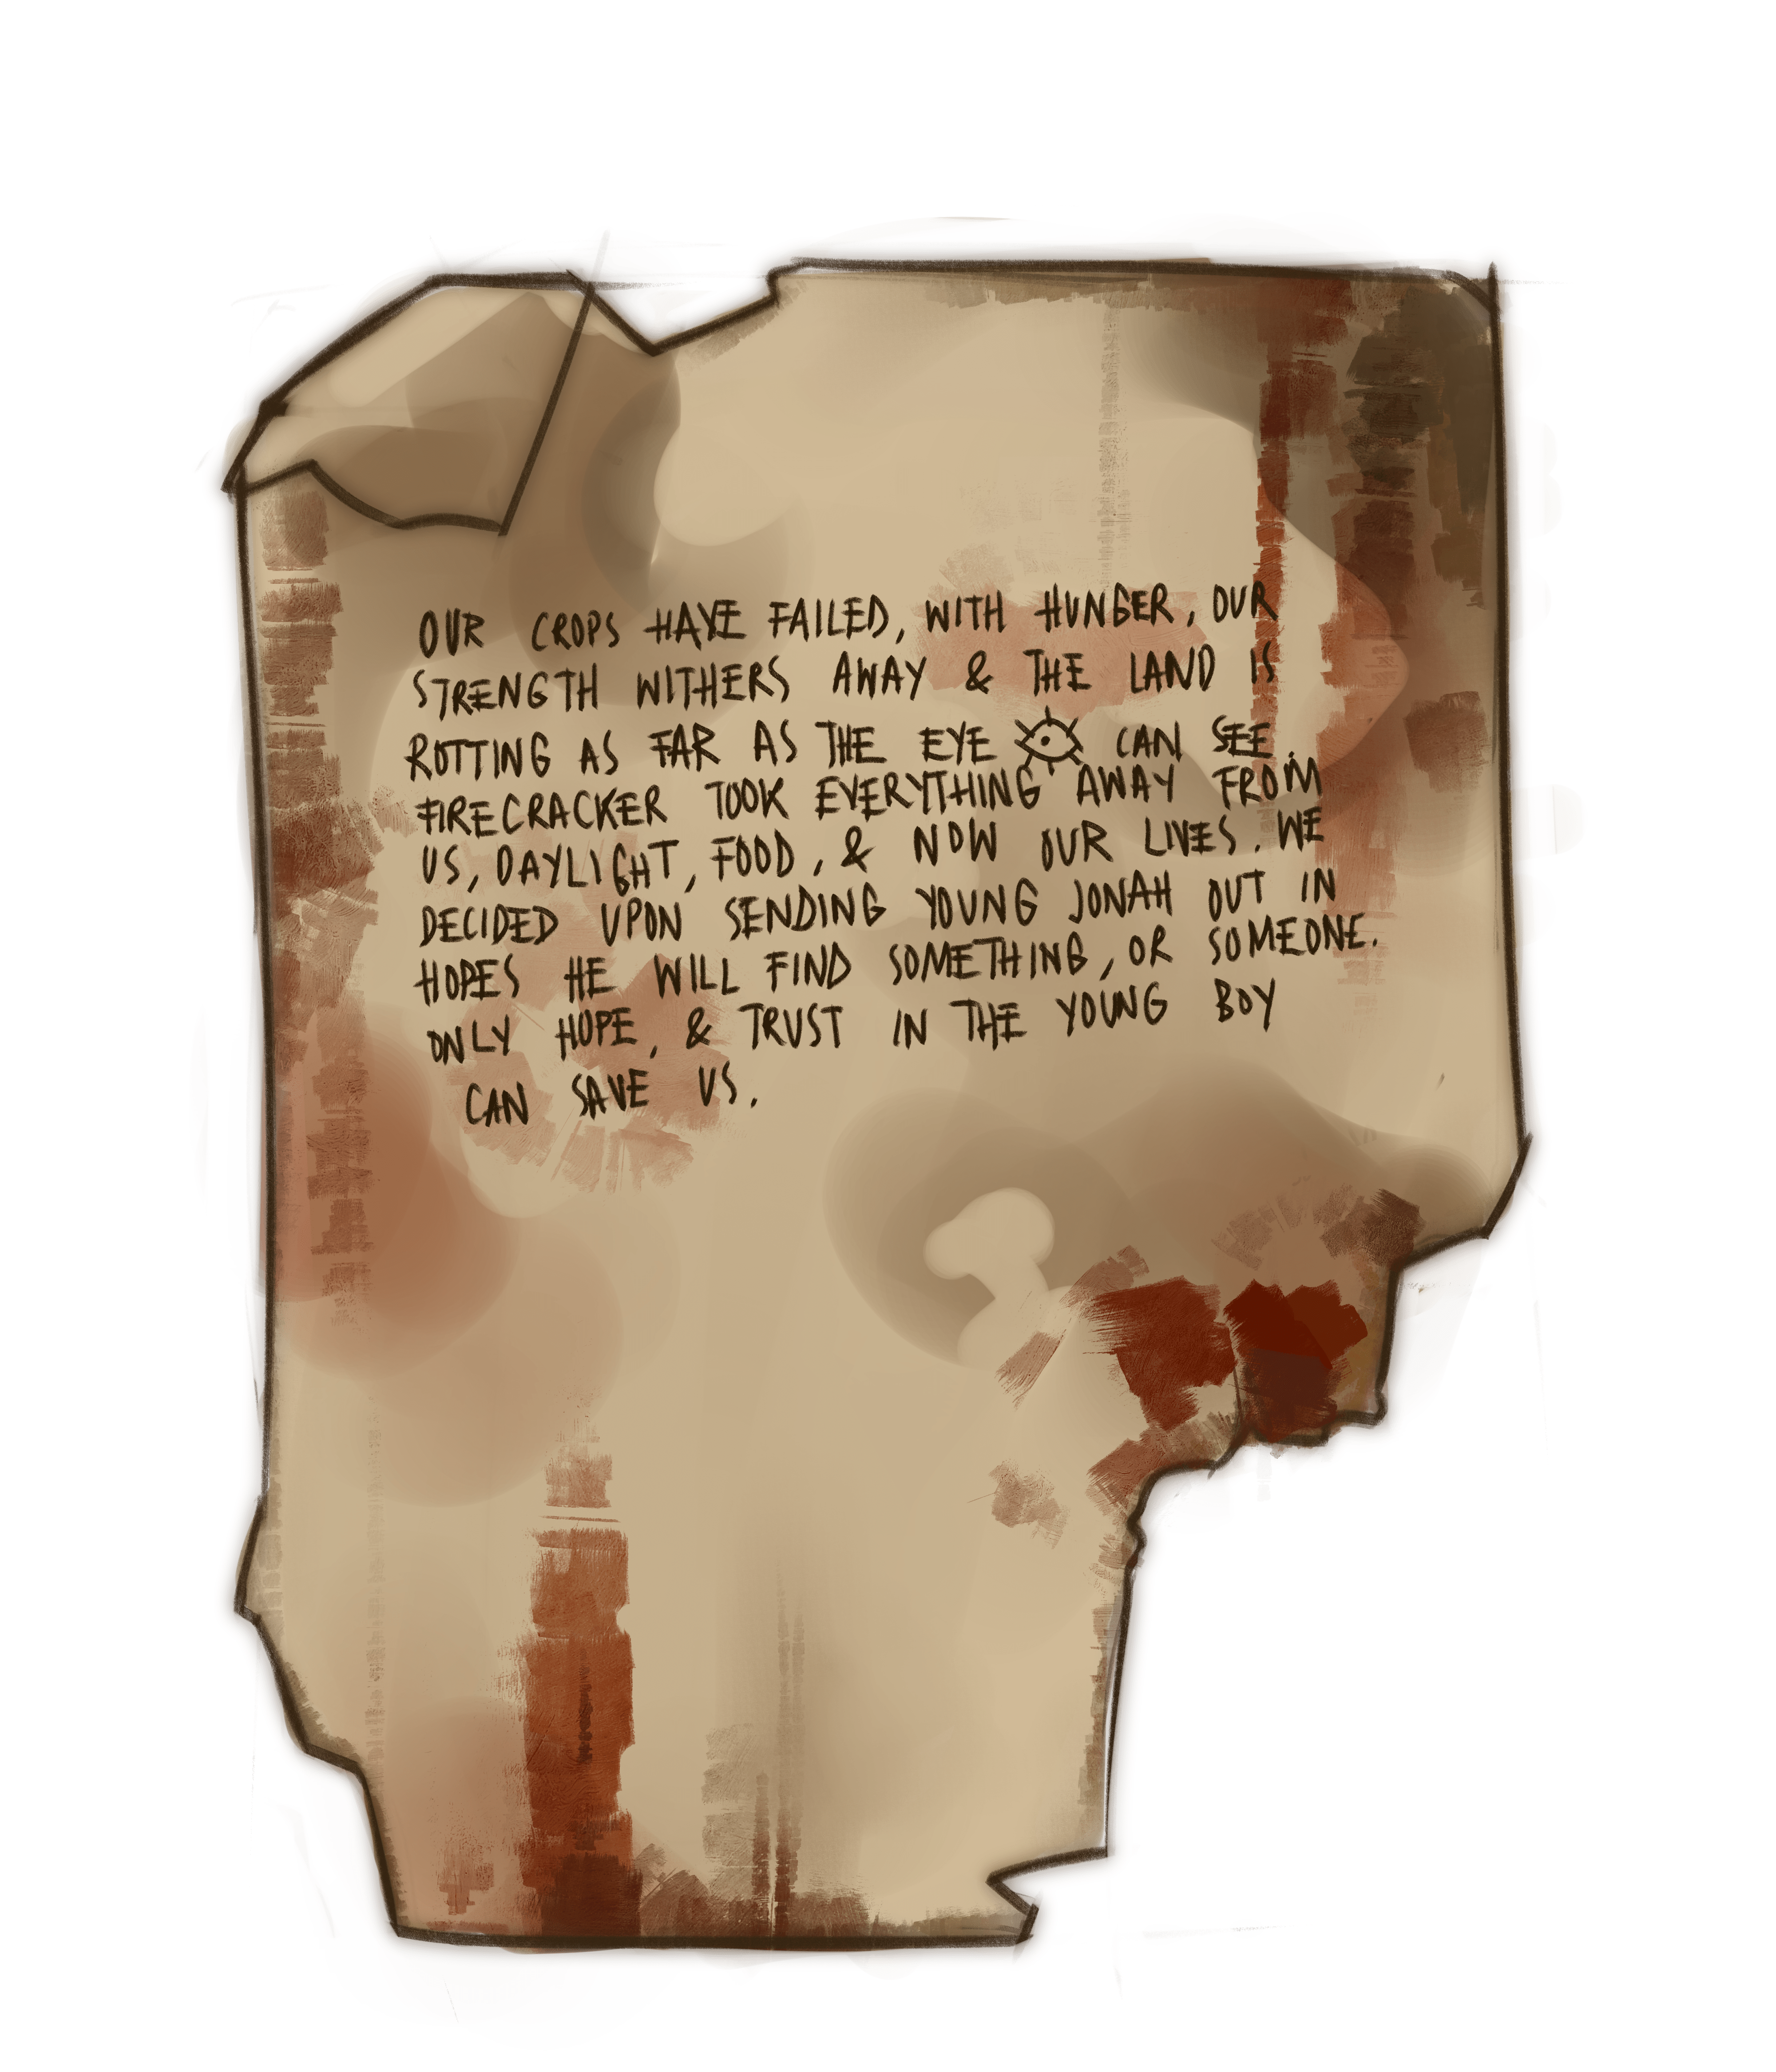 OUR CROPS HAVE FAILED, WITH HUNGER, OUR
STRENGTH WITHERS AWAY & THE LAND IS
ROTTING AS FAR AS THE EYE CAN SEE.
FIRECRACKER TOOK EVERYTHING AWAY FROM
US, DAYLIGHT, FOOD, & NOW OUR LIVES. WE
DECIDED UPON SENDING YOUNG JONAH OUT IN
HOPES HE WILL FIND SOMETHING, OR SOMEONE.
ONLY HOPE, & TRUST IN THE YOUNG BOY
CAN SAVE US.